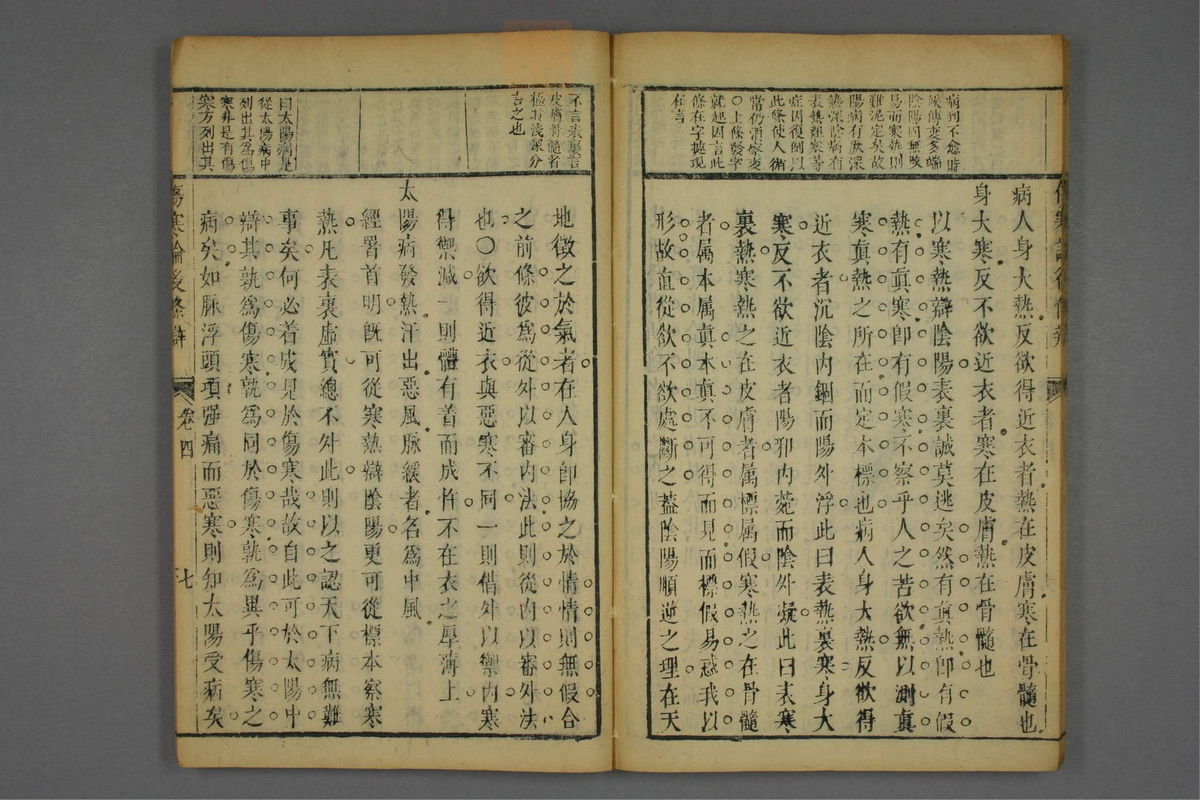 病到不愈時
陰陽固無晐
易而寒熱則
難泥定矣故
陽病有厥深
熱深陰病有
表熱裏寒等
症因復例以
此條使人術
常仍酒察变
○上條發字
就起因言此
條在字據現
在言
病人身大熱反欲得近衣者熱在皮膚寒在骨髓也
身大寒反不欲近衣者寒在皮膚熱在骨髓也
以寒熱辯陰陽表裏誠莫逃矣然有真熱卽有假
熱有真寒卽有假寒不察乎人之苦欲無以測真
寒真熱之所在而定本標也病人身大熱反欲得
近衣者沉陰内錮而陽外浮此曰表熱裏寒身大
寒反不欲近衣者陽邪内菀而陰外凝此曰表寒
裏熱寒熱之在皮膚者属標属假寒熱之在骨髓
者属本属真本真不可得而見而標假易惑我以
形故直從欲不欲處斷之蓋陰陽順逆之理在天
不言表裏言
皮膚骨髓者
極其淺深分
言之也
曰太陽病是
從太陽病中
列出其爲傷
寒非是有傷
寒方列出其
地徵之於氣者在人身卽協之於情情則無假合
之前條彼爲從外以審内法此則從内以審外法
也○欲得近衣與惡寒不同一則借外以禦内寒
得禦減一則體有着而成怍不在衣之厚薄上
太陽病發熱汗出惡風脉緩者名爲中風
經署首明旣可從寒熱辯陰陽更可從標本察寒
熱凡表裏虛實總不外此則以之認天下病無難
事矣何必着成見於傷寒哉故自此可於太陽中
辯其孰爲傷寒孰爲同於傷寒孰爲異乎傷寒之
病矣如脉浮頭項强痛而惡寒則知太陽受病矣
傷寒論後條辯
卷四
七